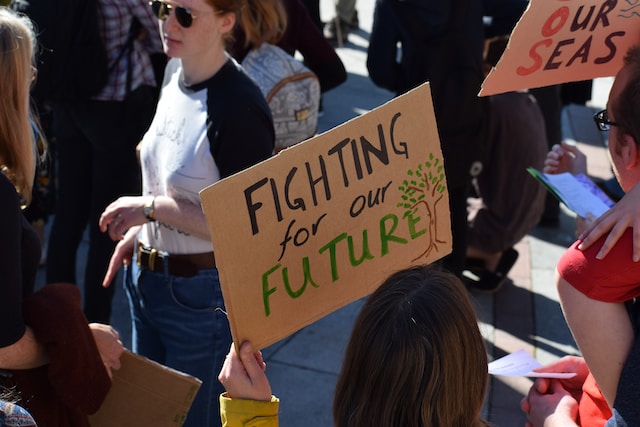 FIGHTING
for our
FUTURE
OUR
SEAS